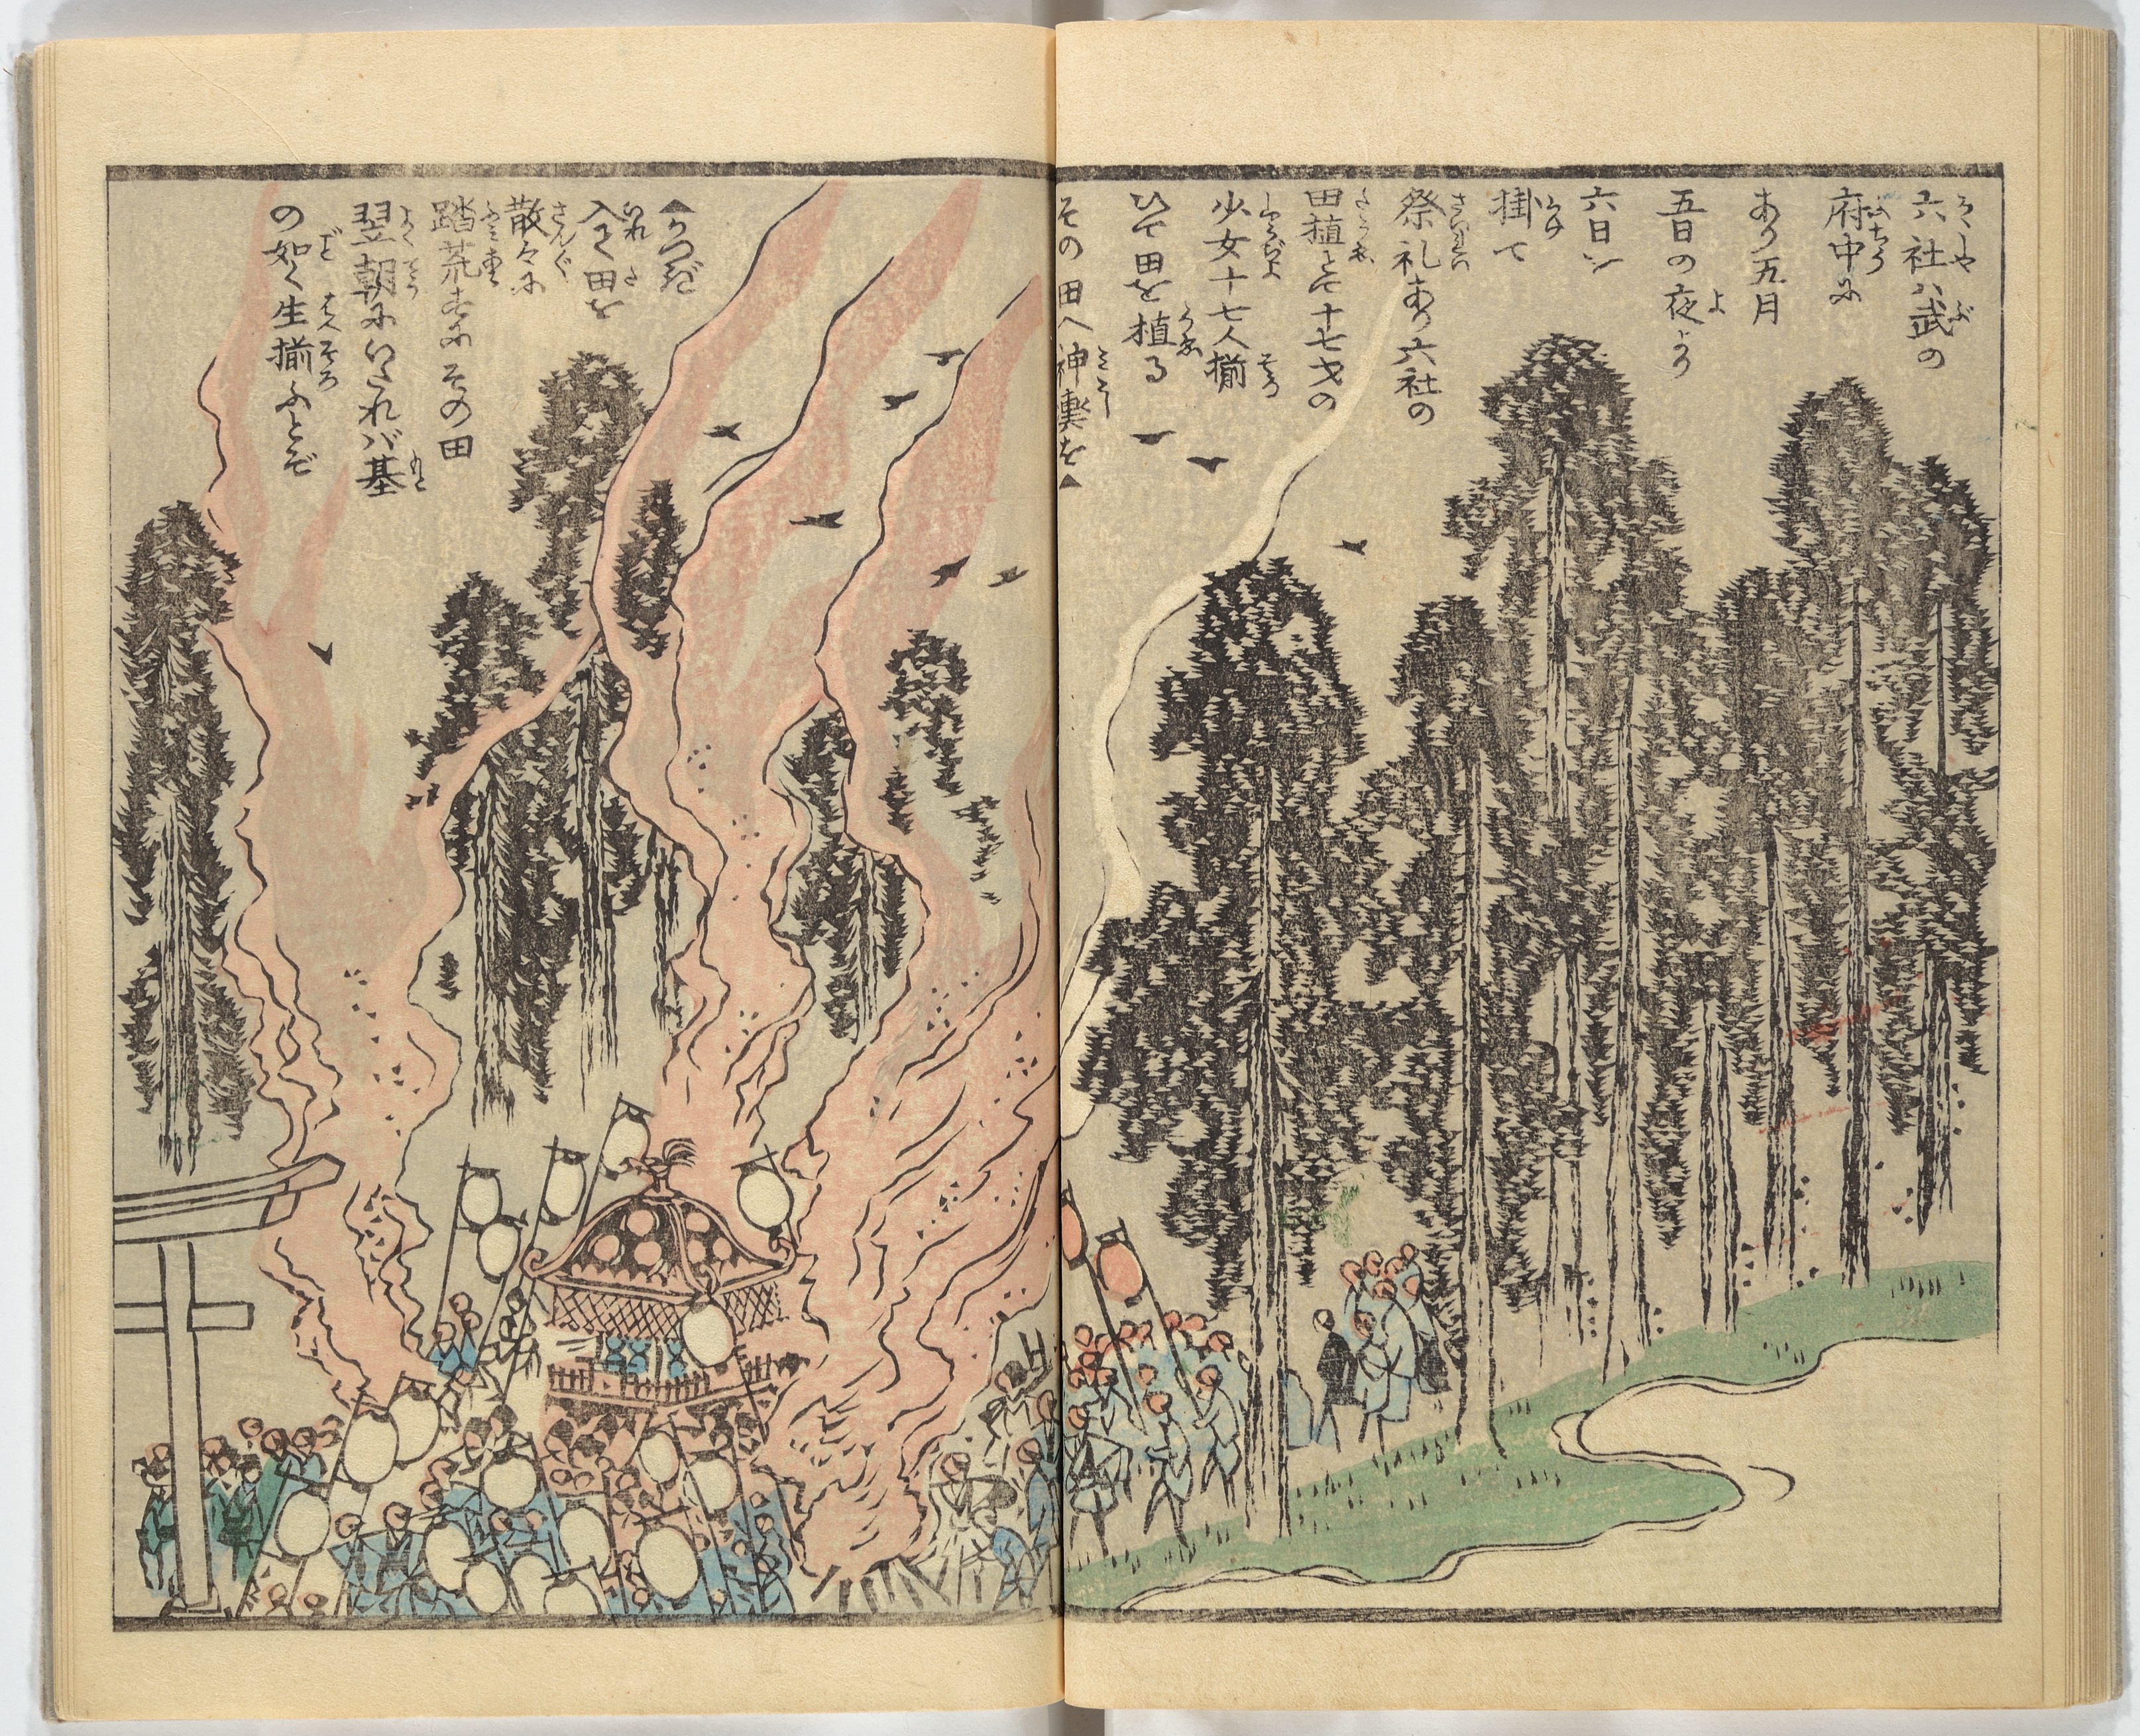 六社ハ武の
府中に
あり五月
五日の夜より
六日ニ
掛て
祭礼あり六社の
田植とて十七才の
少女十七人揃
ひて田を植る
その田へ神輿を▲
▲かつぎ
入て田を
散々に
踏荒すにその田
翌朝にいたれバ基
の如く生揃ふとぞ